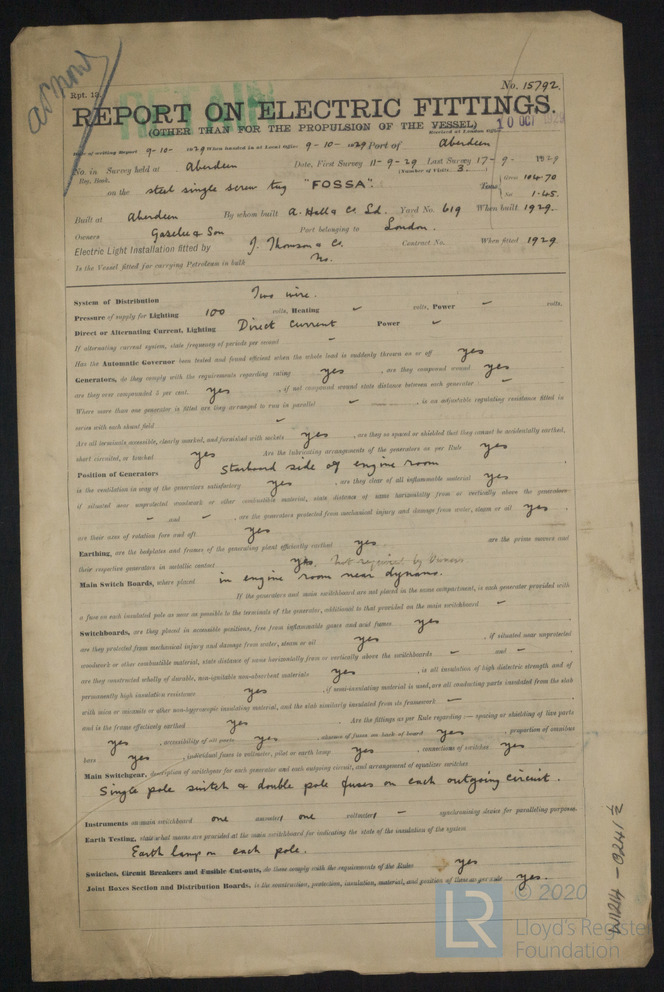 No. 15792.
Rpt. 13.
RETAIN
REPORT ON ELECTRIC FITTINGS.
(OTHER THAN FOR THE PROPULSION OF THE VESSEL)
10 OCT 1929
Date of writing Report 9-10-1929 When handed in at Local Office 9-10-1929 Port of Aberdeen
No. in Survey held at Aberdeen Date, First Survey 11-9-29 Last Survey 17-9-1929
Reg. Book. (Number of Visits 3.)
on the steel single screw tug "FOSSA". Tons Gross 104.70
Net 1.45
Built at Aberdeen By whom built A. Hall & Co. Ld. Yard No. 619 When built 1929.
Owners Gaselee & Son Port belonging to London.
Electric Light Installation fitted by J. Thomson & Co. Contract No. When fitted 1929
Is the Vessel fitted for carrying Petroleum in bulk No.
System of Distribution Two wire.
Pressure of supply for Lighting 100 volts, Heating – volts, Power – volts.
Direct or Alternating Current, Lighting Direct Current Power –
If alternating current system, state frequency of periods per second –
Has the Automatic Governor been tested and found efficient when the whole load is suddenly thrown on or off yes
Generators, do they comply with the requirements regarding rating yes, are they compound wound yes
are they over compounded 5 per cent. yes, if not compound wound state distance between each generator –
Where more than one generator is fitted are they arranged to run in parallel –, is an adjustable regulating resistance fitted in
series with each shunt field –
Are all terminals accessible, clearly marked, and furnished with sockets yes, are they so spaced or shielded that they cannot be accidentally earthed,
short circuited, or touched yes Are the lubricating arrangements of the generators as per Rule yes
Position of Generators Starboard side of engine room
is the ventilation in way of the generators satisfactory yes, are they clear of all inflammable material yes
if situated near unprotected woodwork or other combustible material, state distance of same horizontally from or vertically above the generators
– and –, are the generators protected from mechanical injury and damage from water, steam or oil yes.
are their axes of rotation fore and aft yes
Earthing, are the bedplates and frames of the generating plant efficiently earthed yes are the prime movers and
their respective generators in metallic contact yes. Not required by Owners
Main Switch Boards, where placed in engine room near dynamo.
If the generators and main switchboard are not placed in the same compartment, is each generator provided with
a fuse on each insulated pole as near as possible to the terminals of the generator, additional to that provided on the main switchboard –
Switchboards, are they placed in accessible positions, free from inflammable gases and acid fumes yes
are they protected from mechanical injury and damage from water, steam or oil yes, if situated near unprotected
woodwork or other combustible material, state distance of same horizontally from or vertically above the switchboards – and –
are they constructed wholly of durable, non-ignitable non-absorbent materials yes, is all insulation of high dielectric strength and of
permanently high insulation resistance yes, if semi-insulating material is used, are all conducting parts insulated from the slab
with mica or micanite or other non-hygroscopic insulating material, and the slab similarly insulated from its framework –
and is the frame effectively earthed yes. Are the fittings as per Rule regarding :— spacing or shielding of live parts
yes, accessibility of all parts yes, absence of fuses on back of board yes, proportion of omnibus
bars yes, individual fuses to voltmeter, pilot or earth lamp yes, connections of switches yes
Main Switchgear, description of switchgear for each generator and each outgoing circuit, and arrangement of equaliser switches
Single pole switch & double pole fuses on each outgoing circuit.
Instruments on main switchboard one ammeter, one voltmeter, – synchronising device for paralleling purposes.
Earth Testing, state what means are provided at the main switchboard for indicating the state of the insulation of the system
Earth lamp on each pole.
Switches, Circuit Breakers and Fusible Cut-outs, do these comply with the requirements of the Rules yes
Joint Boxes Section and Distribution Boards, is the construction, protection, insulation, material, and position of these as per rule yes.
W1214-0241 ½
LR © 2020
Lloyd's Register
Foundation